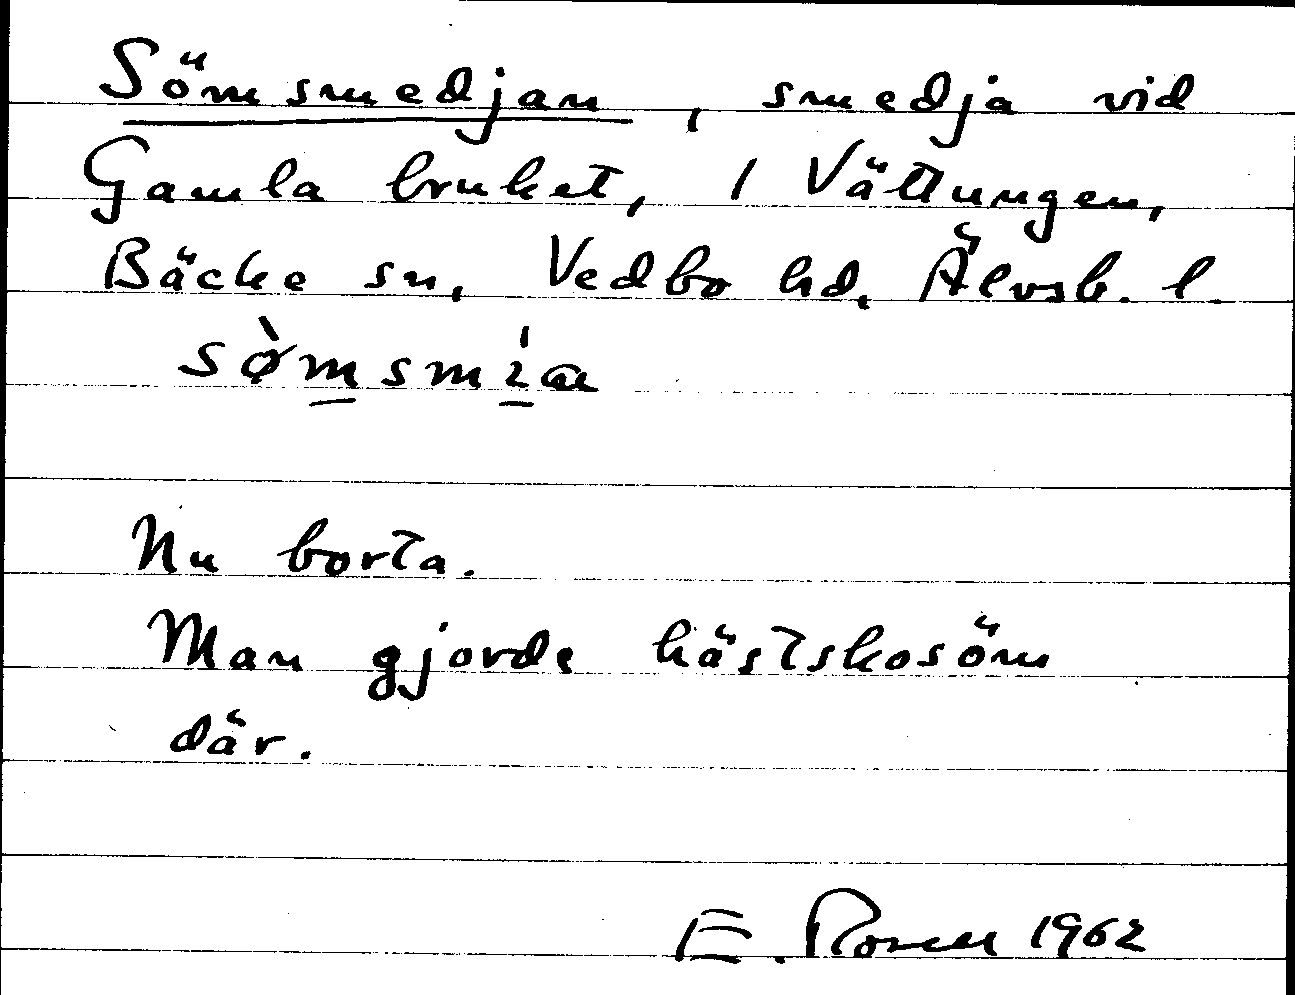 Sömsmedjan, smedja vid
Gamla bruket, 1 Vättungen,
Bäcke sn, Vedbo hd, Älvsb. l.
sø̀msmiα
Nu borta.
Man gjorde hästskosöm
där.
E. 1962